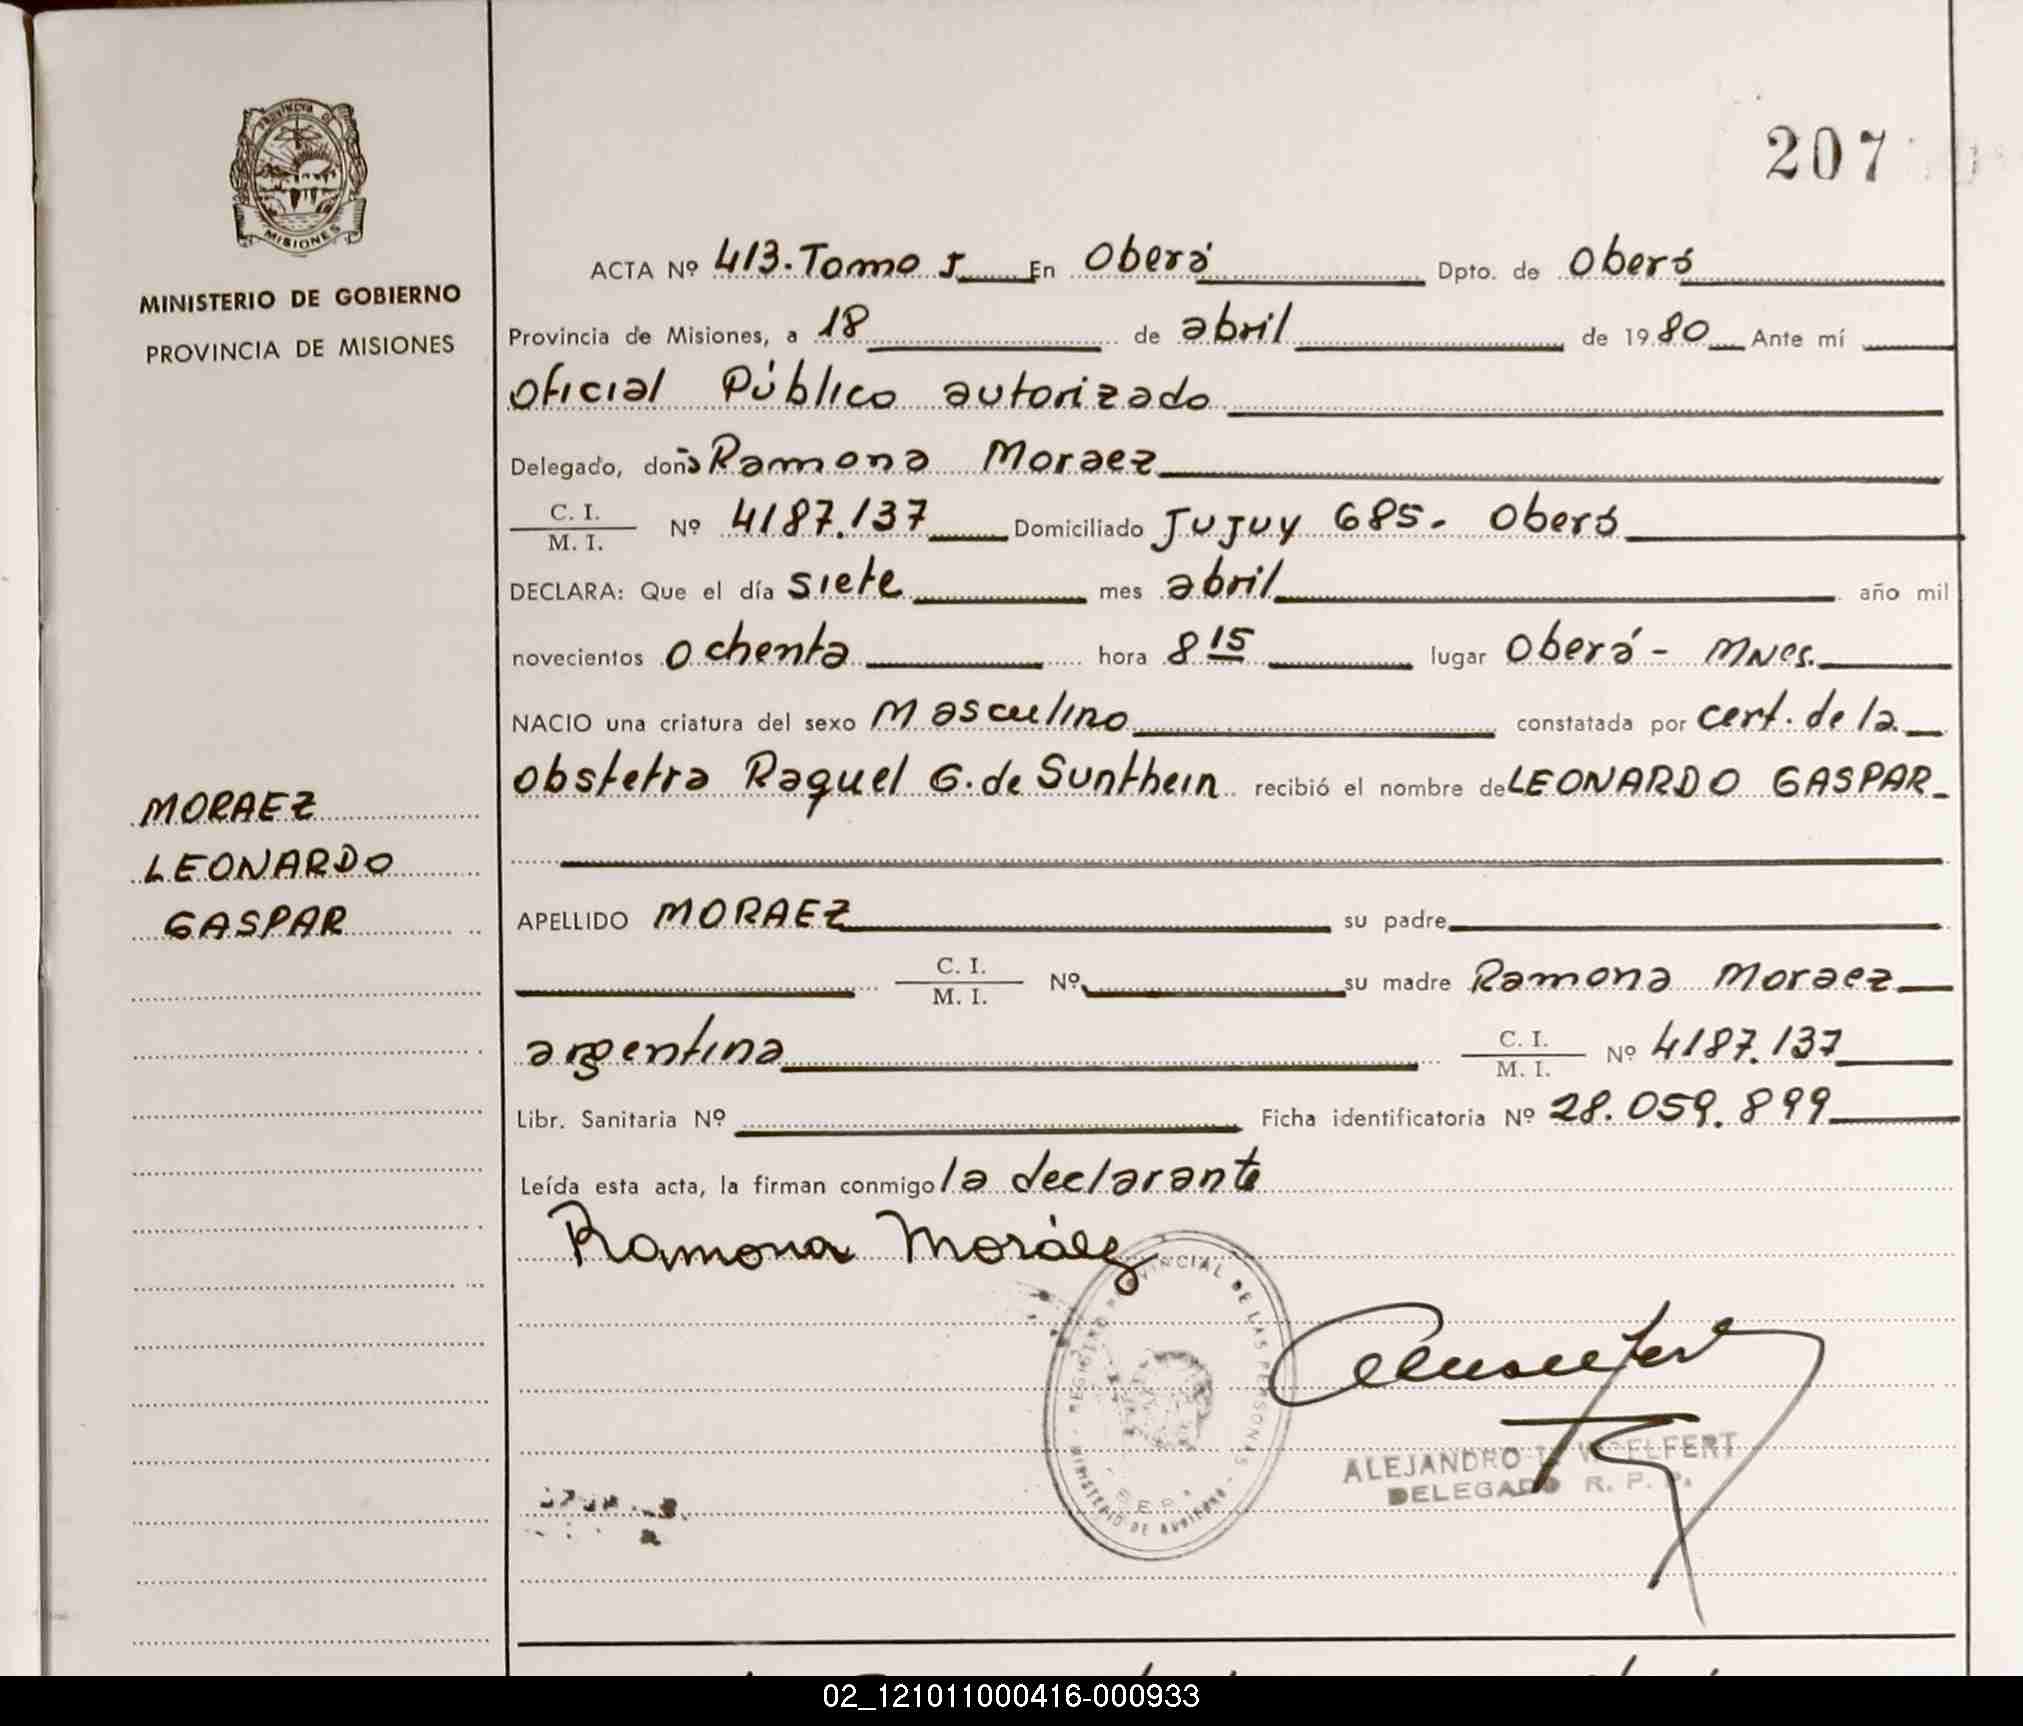 207
PROVINCIA DE
MISIONES
MINISTERIO DE GOBIERNO
PROVINCIA DE MISIONES
ACTA Nº 413. Tomo I En Oberá Dpto. de Oberá
Provincia de Misiones, a 18 de abril de 1980 Ante mí
Oficial Público autorizado
Delegado, doña Ramona Moraez
C. I.
M. I. Nº 4187.137 Domiciliado Jujuy 685. Oberá
DECLARA: Que el día siete mes abril año mil
novecientos ochenta hora 8 15 lugar Oberá - Mnes.
NACIO una criatura del sexo Masculino constatada por cert. de la
Obstetra Raquel G. de Sunthein recibió el nombre de LEONARDO GASPAR
MORAEZ
LEONARDO
GASPAR
APELLIDO MORAEZ su padre
C. I.
M. I. Nº su madre Ramona Moraez
argentina C. I.
M. I. Nº 4187.137
Libr. Sanitaria Nº Ficha identificatoria Nº 28.059.899
Leída esta acta, la firman conmigo la declarante
Ramona Moráez
REGISTRO PROVINCIAL DE LAS PERSONAS
MINISTERIO DE GOBIERNO
ALEJANDRO WOELFERT
DELEGADO R. P. P.
02_121011000416-000933